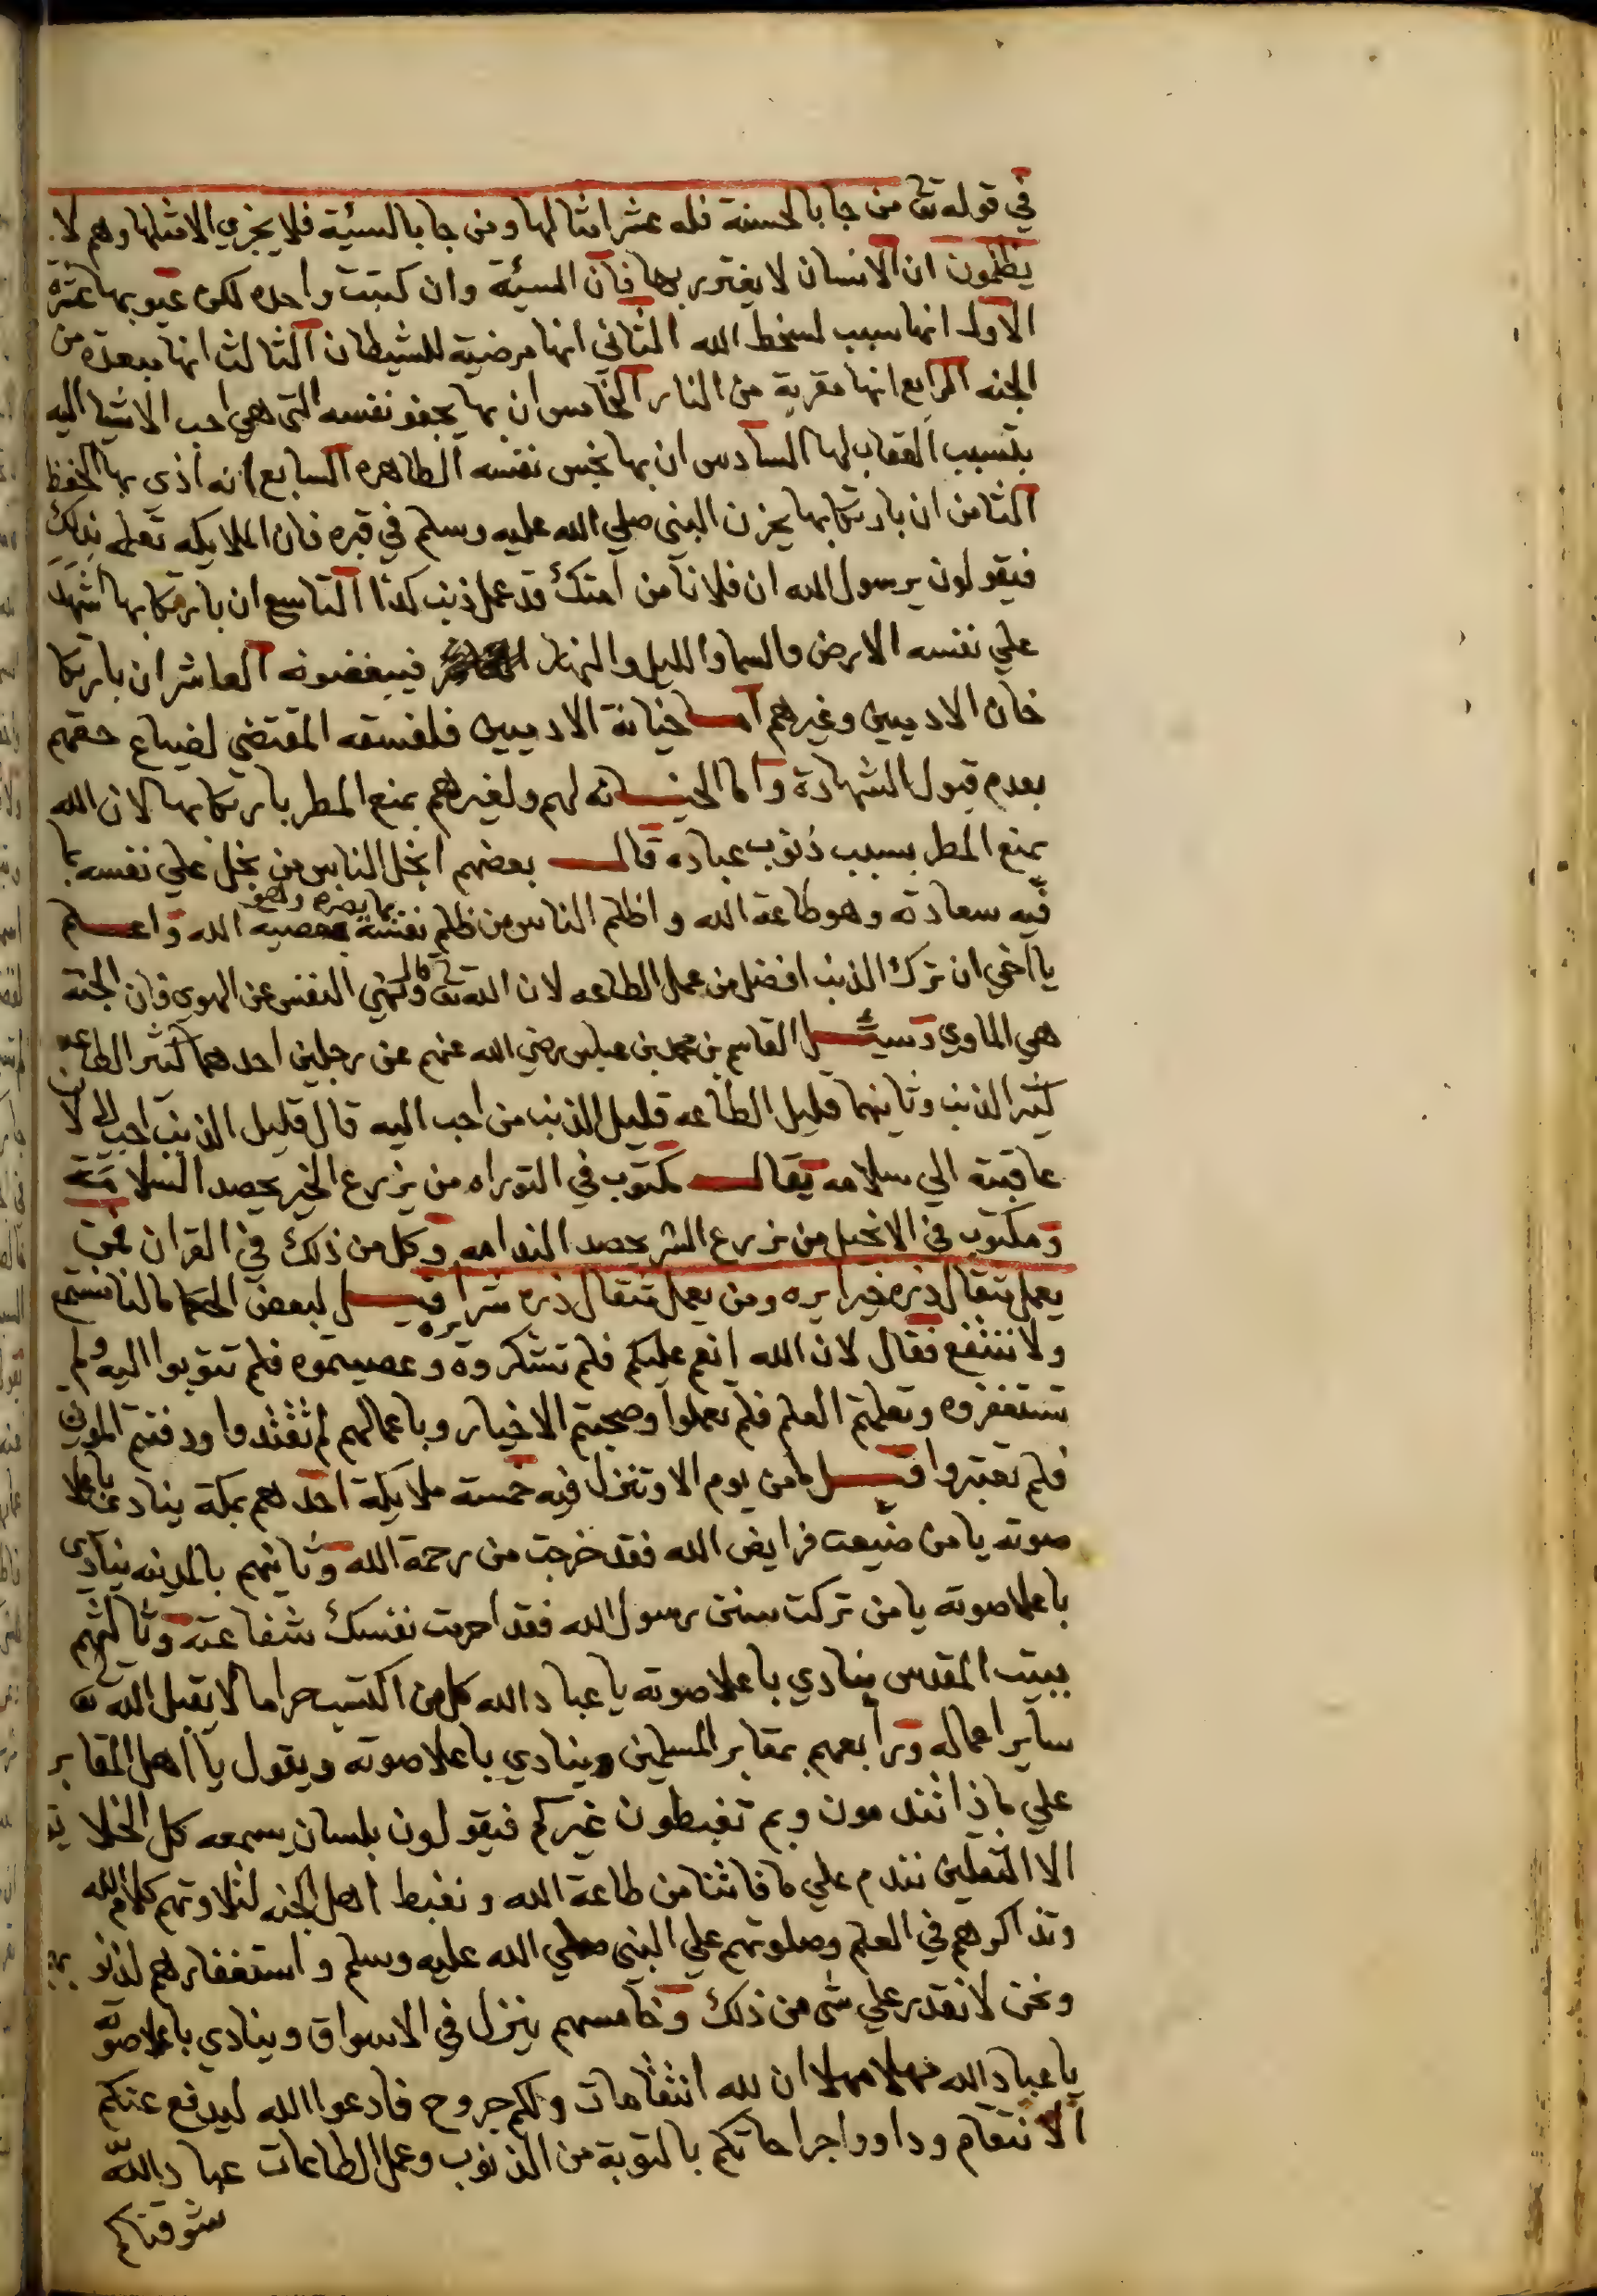 في قوله تع من جا بالحسنة فله عشر امثالها ومن جا بالسيئة فلا يجزي الا مثلها وهم لا
يظلمون ان الانسان لا يغترر بها فان السيئة وان كتبت واحده لكن عيوبها عشرة
الاول انها سبب لسخط الله الثاني انها مرضية للشيطان الثالث انها مبعدة من
الجنه الرابع انها مقربة من النار الخامس ان بها يجفو نفسه التي هي احب الاشيا اليه
بتسبب العقاب لها السادس ان بها نجس نفسه الطاهره السابع انه اذي بها الحفظ
الثامن ان بارتكابها يحزن النبي صلي الله عليه وسلم في قبره فان الملايكه تعلمه بذلك
فيقولون يرسول الله ان فلانا من امتك قد عمل ذنب كذا التاسع ان بارتكابها اشهد
علي نفسه الارض والسما والليل والنهار فيبغضونه العاشر ان بارتكا
خان الادميين وغيرهم اما خيانة الادميين فلفسقه المقتضي لضياع حقهم
بعدم قبول الشهادة واما الخيانه لهم ولغيرهم بمنع المطر بارتكابها لان الله
يمنع المطر بسبب ذنوب عباده قال بعضهم ابخل الناس من بخل علي نفسه بما
فيه سعادته وهو طاعة الله واظلم الناس من ظلم نفسه بما يضره وهو معصيه الله واعلم
يا اخي ان ترك الذنب افضل من عمل الطاعه لان الله تع قال ونهي النفس عن الهوي فان الجنة
هي الماوي وسيئل القاسم بن محمد بن عباس رضي الله عنهم عن رجلين احدهما كثير الطاعه
كثير الذنب وثانيهما قليل الطاعه قليل الذنب من احب اليه قال قليل الذنب احب الي لان
عاقبته الي سلامه يقال مكتوب في التوراه من يزرع الخير يحصد السلامة
ومكتوب في الانجيل من زرع الشر يحصد الندامه وكل من ذلك في القران فمن
يعمل مثقال ذره خيرا يره ومن يعمل مثقال ذره شرا يره قيل لبعض الحكما مالنا نسمع
ولا ننتفع فقال لان الله انعم عليكم فلم تشكروه وعصيتموه فلم تتوبوا اليه ولم
تستغفروه وتعلمتم العلم فلم تعملوا وصحبتم الاخيار وباعمالهم لم تقتدوا ودفنتم الموتي
فلم تعتبروا قيل ما من يوم الا وتنزل فيه خمسة ملايكة احدهم بمكة ينادي باعلا
صوته يا من ضيعت فرايض الله فقد خرجت من رحمة الله وثانيهم بالمدينه ينادي
باعلا صوته يا من تركت سنن رسول الله فقد احرمت نفسك شفاعته وثالثهم
ببيت المقدس ينادي باعلا صوته يا عباد الله كل من اكتسب حراما لا يقبل الله تع
ساير اعماله ورابعهم بمقابر المسلمين وينادي باعلا صوته ويقول يا اهل المقابر
علي ماذا تندمون وبم تغبطون غيركم فيقولون بلسان يسمعه كل الخلايق
الا الثقلين نندم علي ما فاتنا من طاعة الله ونغبط اهل الجنه لتلاوتهم كلام الله
وتذاكرهم في العلم وصلوتهم علي النبي صلي الله عليه وسلم واستغفارهم لذنوبهم
ونحن لا نقدر علي شي من ذلك وخامسهم ينزل في الاسواق وينادي باعلا صوته
يا عباد الله مهلا مهلا ان لله انتقامات ولكم جروح فادعوا الله ليدفع عنكم
الانتقام وداووا جراحاتكم بالتوبة من الذنوب وعمل الطاعات عباد الله
شوقناكم